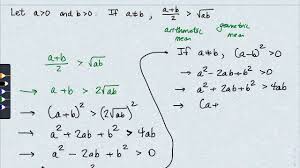 Let a>0 and b>0 : If a≠b, (a+b)/2 > √ab
arithmetic mean
geometric mean
(a+b)/2 > √ab
→ a+b > 2√ab
→ (a+b)² > (2√ab)²
→ a²+2ab+b² > 4ab
→ a²-2ab+b² > 0
If a≠b, (a-b)² > 0
→ a²-2ab+b² > 0
→ a²+2ab+b² > 4ab
→ (a+